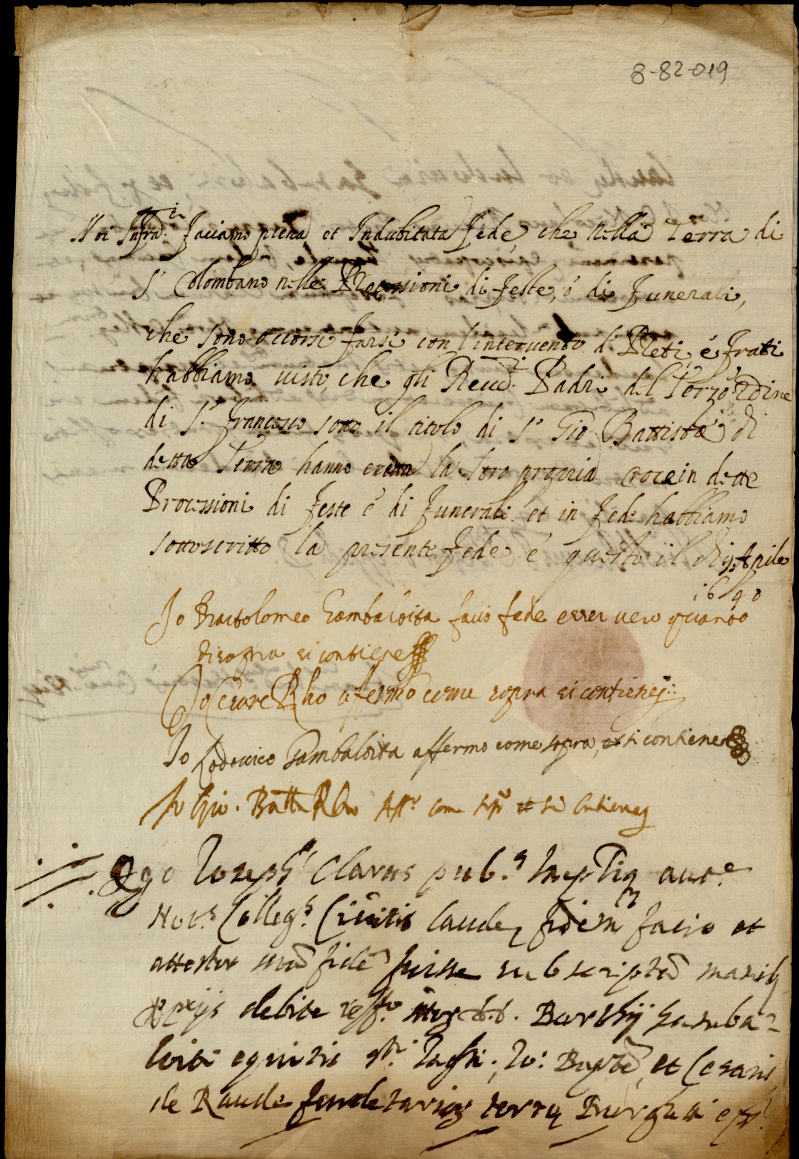 8-82-019
Noi Infra.i facciamo piena et Indubitata fede, che nella Terra di
S. Colombano nelle Processioni di feste, ò di funerali,
che sono occorsi farsi con l'intervento di Preti, é frati
habbiamo visto che gli Reud.i Padri del Terz'ordine
di S.to francesco sotto il titolo di S.to Gio Battista di
detta Terra hanno la loro propria croce in dette
Processioni di feste é di funerali. et in fede habbiamo
sottoscritto la presente fede é questo il dì 9 Aprile
1690
Io Bartolomeo Gambaloita faccio fede esser vero quanto
di sopra si contiene
Io Cesare Rho affermo come sopra si contiene
Io Lodovico Gambaloita affermo come sopra, si contiene
Io Gio. Batta Rho Aff.o come sop.a si contiene
Ego Joseph Clarus pub.s aut.e
Not.s Colleg.s Civitis Laudę fidem facio et
attestor fidē fuisse subscriptā manib
debite Barthij Gamba-
loite equitis Bapte, et Cesaris
de Raude feudetarios terrę Burgeti